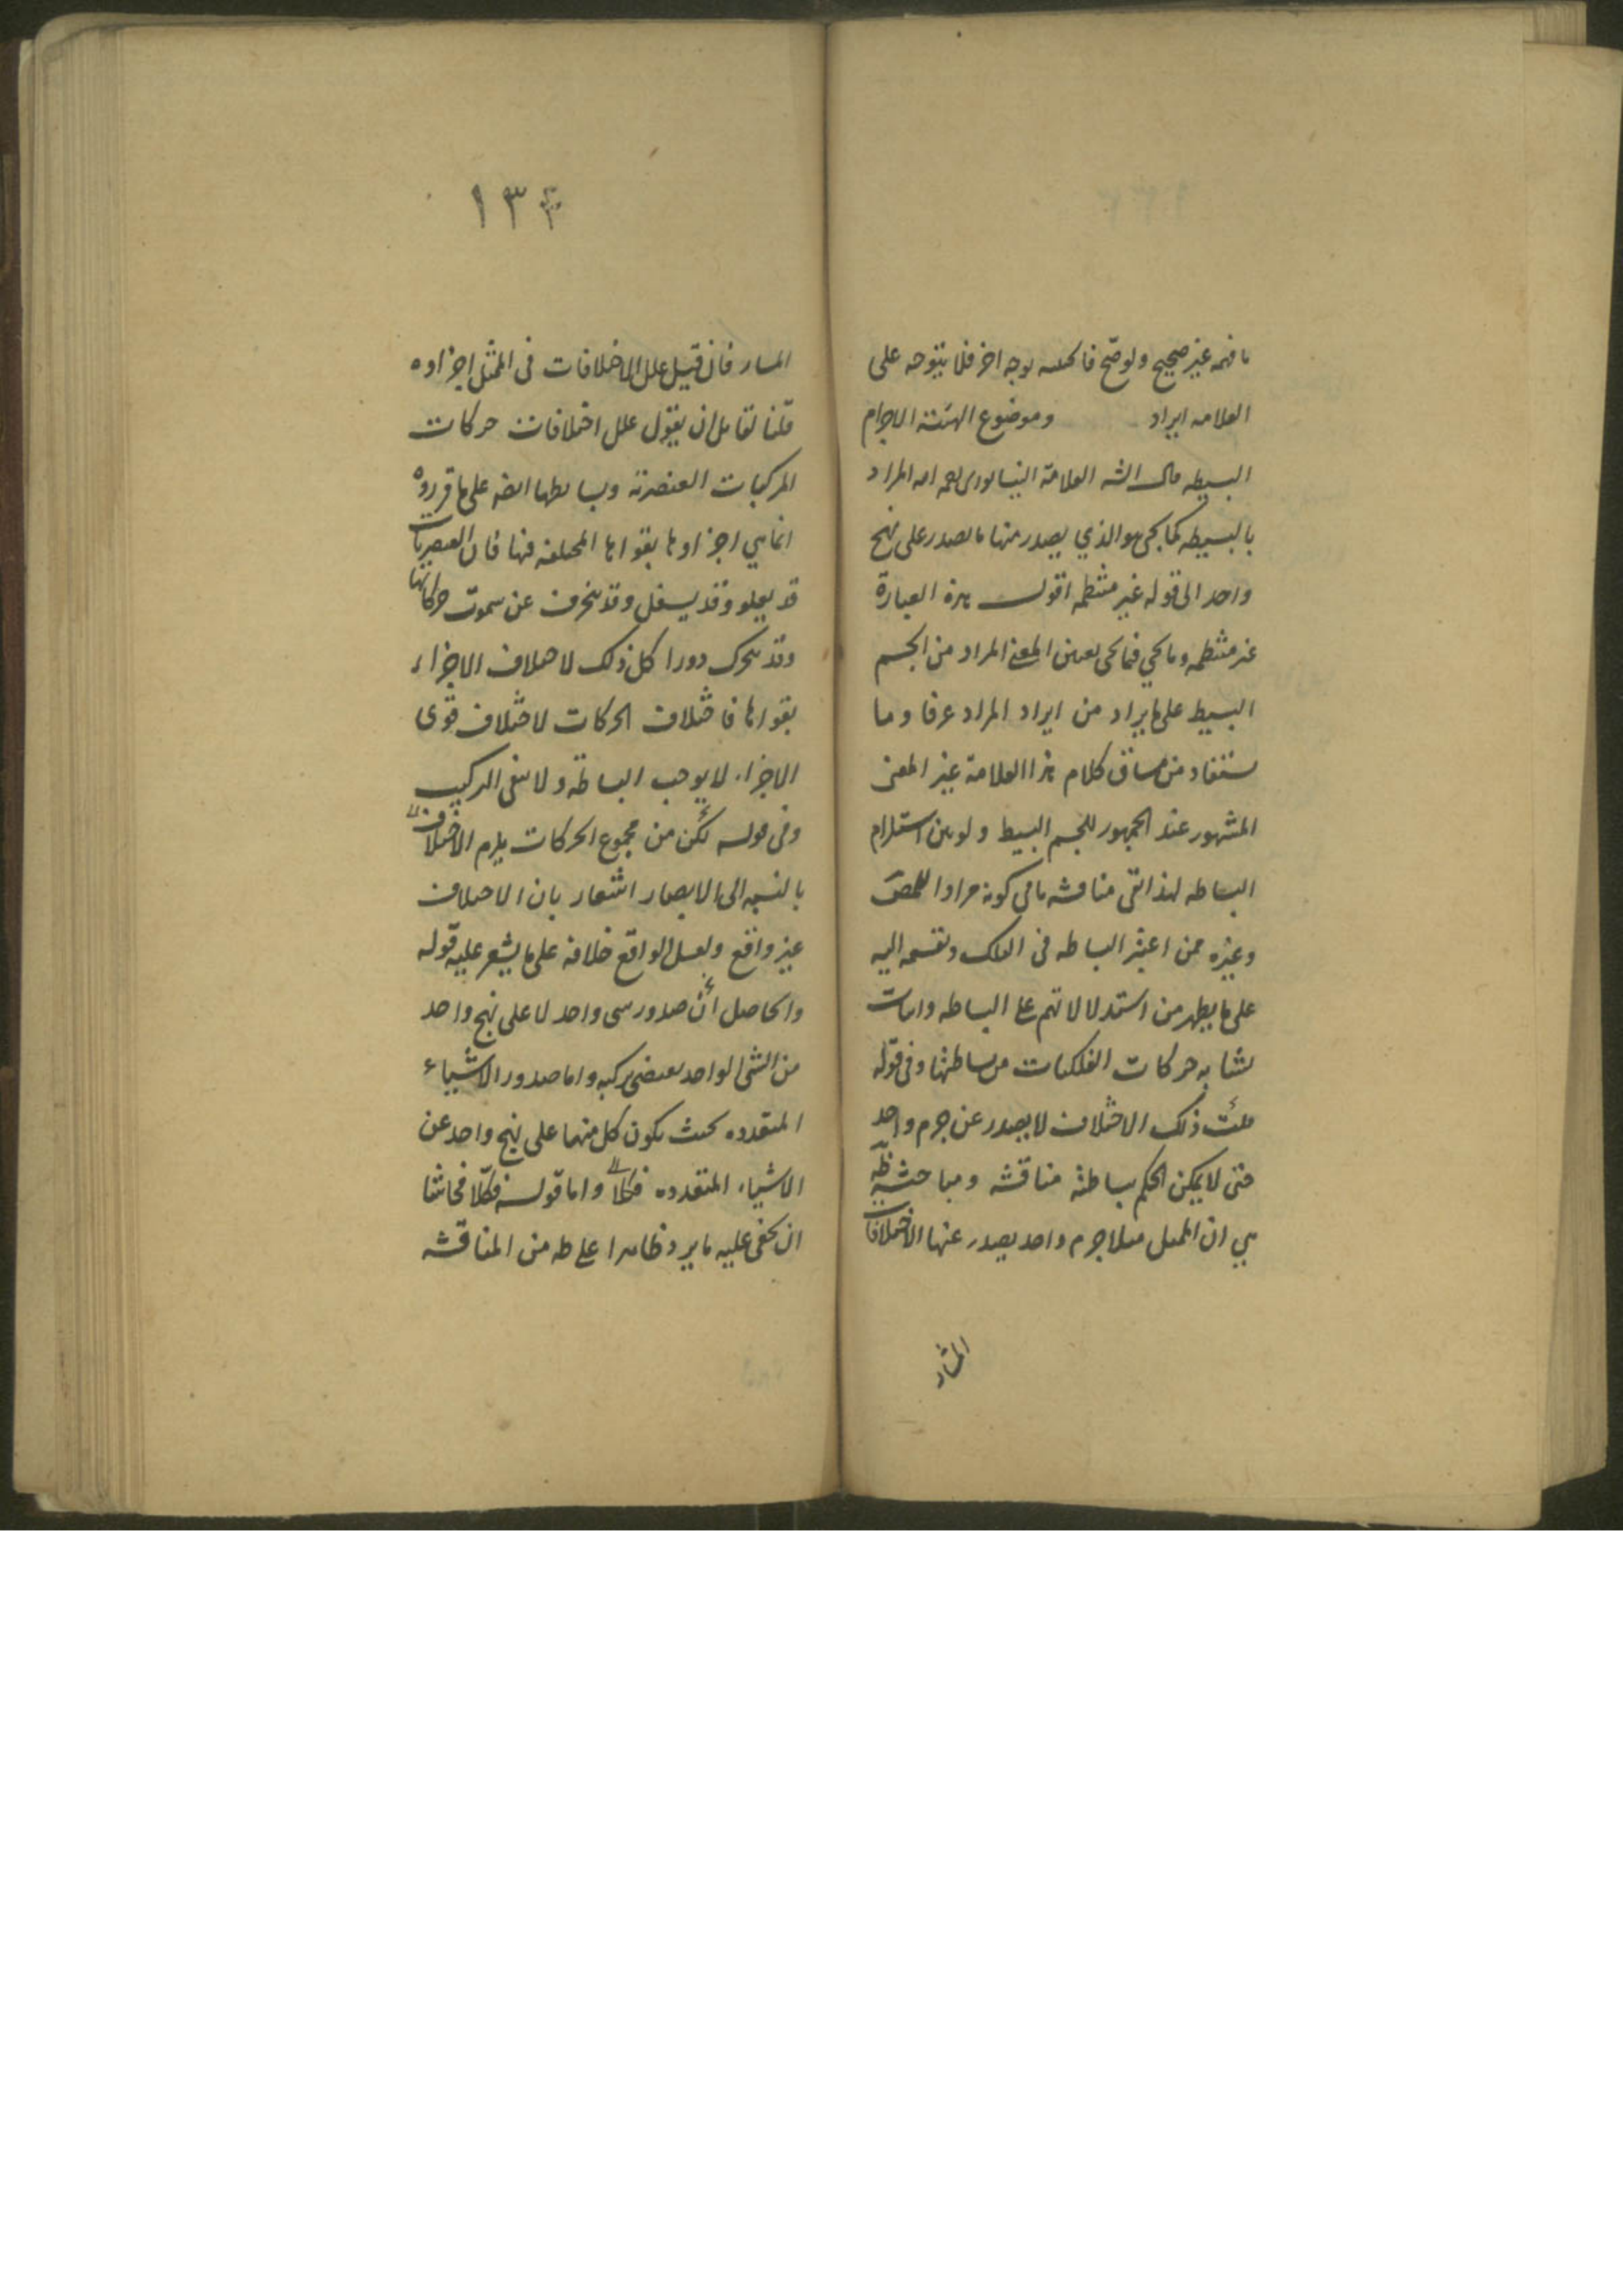 ما فهمه غير صحيح ولو صح فا لوجه اخر فلا يتوجه على
العلامه ايراد وموضوع الهيئة الاجرام
البسيطه قال الشه العلامة النيسابورى رحمه الله المراد
بالبسيطه كما يجي هو الذي يصدر منها ما يصدر على نهج
واحد الى قوله غير منتظمه اقول هذه العبارة
غير منتظمه وما يجي فيما يجي بعين المعنى المراد من الجسم
البسيط على ما يراد من ايراد المراد عرفا وما
يستفاد من مساق كلام هذا العلامة غير المعنى
المشهور عند الجمهور للجسم البسيط ولو بين استلزام
البساطه لهذا بقى مناقشه ما فى كونه مرادا للمصنف
وغيره ممن اعتبر البساطه فى الفلك وتقسمه اليه
على ما يظهر من استدلالاتهم على البساطه واثبات
تشابه حركات الفلكيات من بساطتها وفى قوله
قلت ذلك الاختلاف لا يصدر عن جرم واحد
حتى لا يمكن الحكم ببساطته مناقشه ومباحثه ظه
هي ان الممثل مثلا جرم واحد يصدر عنها الاختلافات
المشار
١٣٣
المشار فان قيل علل الاختلافات فى الممثل اجزاوه
قلنا لقايل ان يقول علل اختلافات حركات
المركبات العنصرية وبسايطها ايضه على ما قرروه
انما هي اجزاوها بقواها المختلفه فيها فان العنصريات
قد يعلو وقد يسفل وقد ينحرف عن سموت حركاتها
وقد يتحرك دورا كل ذلك لاختلاف الاجزاء
بقواها فاختلاف الحركات لاختلاف قوى
الاجزاء لا يوجب البساطة ولا ينفى التركيب
وفى قوله لكن من مجموع الحركات يلزم الاختلاف
بالنسبه الى الابصار اشعار بان الاختلاف
غير واقع ولعل الواقع خلافه على ما يشعر عليه قوله
والحاصل ان صدور شى واحد لا على نهج واحد
من الشى الواحد يقتضى تركبه واما صدور الاشياء
المتعدده بحيث يكون كل منها على نهج واحد عن
الاشياء المتعدده فكلا واما قوله فكلا فحاشا
ان يخفى عليه ما يرد ظاهرا على طه من المناقشه